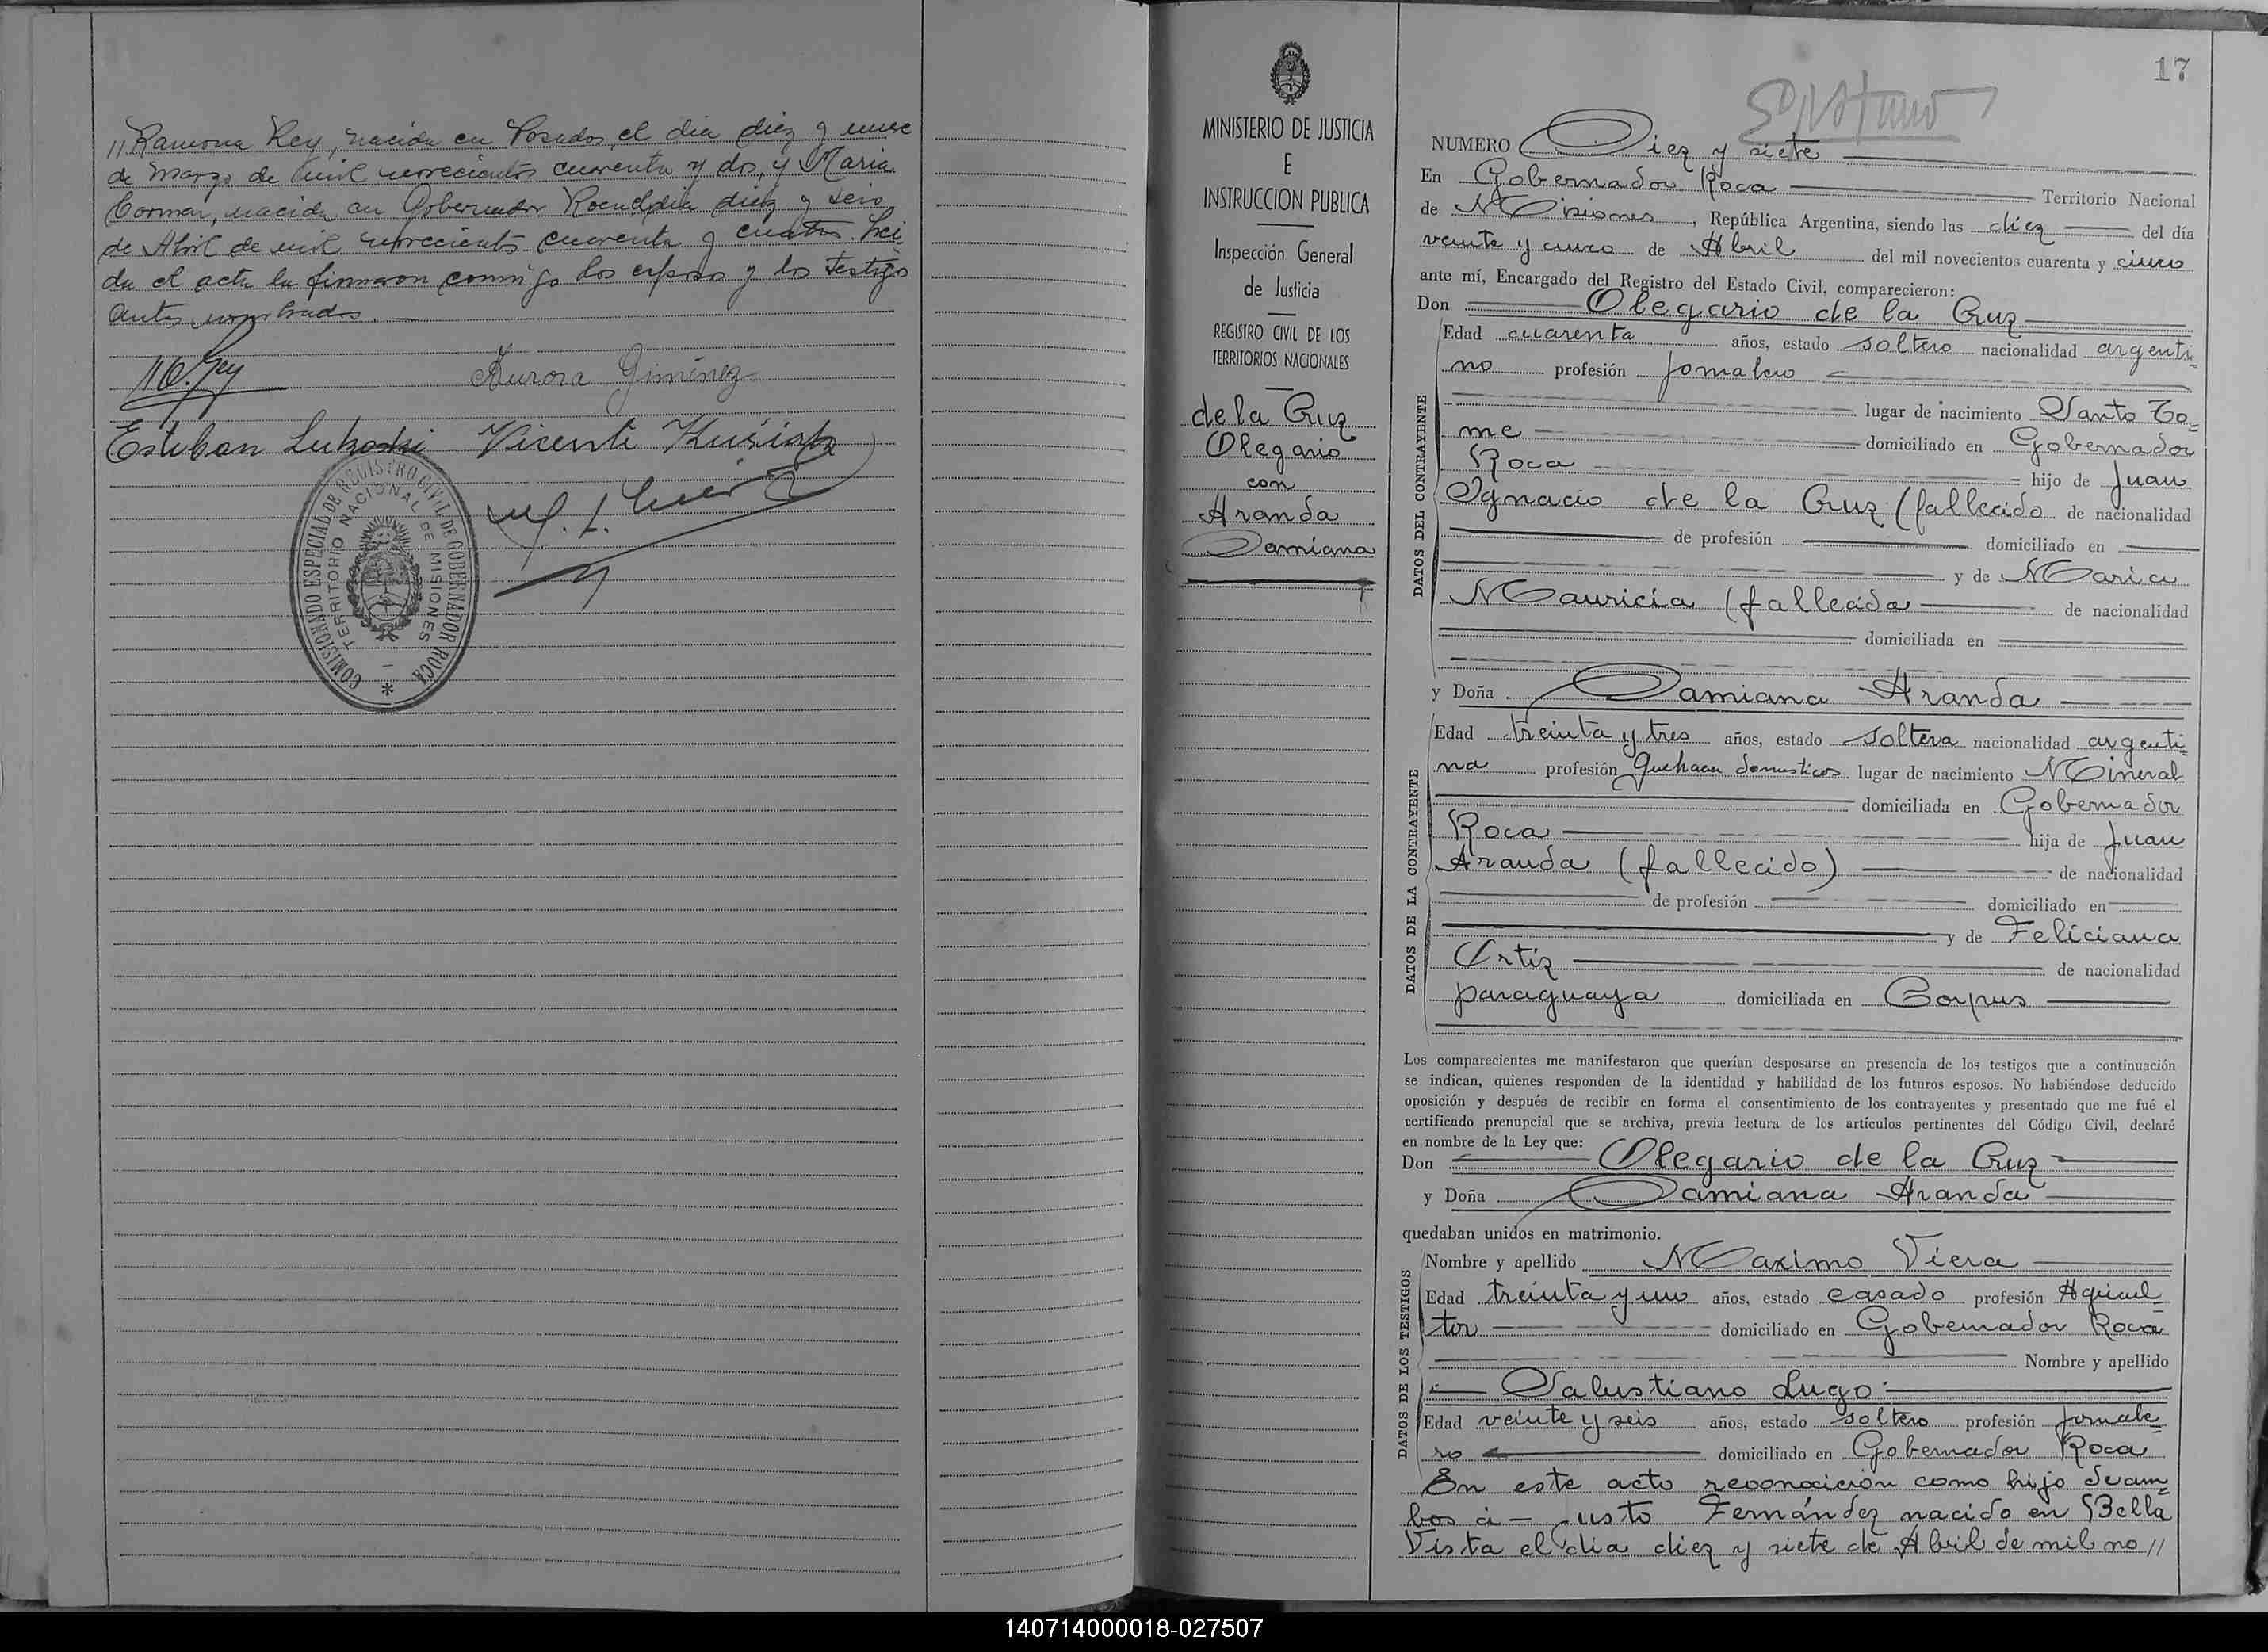 // Ramona Rey, nacida en Posadas, el dia diez y nueve
de Marzo de mil novecientos cuarenta y dos, y Maria
Carmen, nacida en Gobernador Roca el dia diez y seis
de Abril de mil novecientos cuarenta y cuatro. Lei-
da el acta la firmaron conmigo los esposos y los testigos
antes nombrados.
Aurora Giménez
Esteban Lukoski Vicente
COMISIONADO ESPECIAL DE REGISTRO CIVIL DE GOBERNADOR ROCA
TERRITORIO NACIONAL DE MISIONES
MINISTERIO DE JUSTICIA
E
INSTRUCCION PUBLICA
Inspección General
de Justicia
REGISTRO CIVIL DE LOS
TERRITORIOS NACIONALES
de la Cruz
Olegario
con
Aranda
Damiana
17
NUMERO Diez y siete
En Gobernador Roca Territorio Nacional
de Misiones, República Argentina, siendo las diez del día
veinte y cinco de Abril del mil novecientos cuarenta y cinco
ante mí, Encargado del Registro del Estado Civil, comparecieron:
Don Olegario de la Cruz
DATOS DEL CONTRAYENTE
Edad cuarenta años, estado soltero nacionalidad argenti-
no profesión Jornalero
lugar de nacimiento Santo To-
me domiciliado en Gobernador
Roca hijo de Juan
Ignacio de la Cruz (fallecido de nacionalidad
de profesión domiciliado en
y de Maria
Mauricia (fallecida de nacionalidad
domiciliada en
y Doña Damiana Aranda
DATOS DE LA CONTRAYENTE
Edad treinta y tres años, estado soltera nacionalidad argenti-
na profesión Quehacer domesticos lugar de nacimiento Mineral
domiciliada en Gobernador
Roca hija de Juan
Aranda (fallecido) de nacionalidad
de profesión domiciliado en
y de Feliciana
Ortiz de nacionalidad
paraguaya domiciliada en Corpus
Los comparecientes me manifestaron que querían desposarse en presencia de los testigos que a continuación
se indican, quienes responden de la identidad y habilidad de los futuros esposos. No habiéndose deducido
oposición y después de recibir en forma el consentimiento de los contrayentes y presentado que me fué el
certificado prenupcial que se archiva, previa lectura de los artículos pertinentes del Código Civil, declaré
en nombre de la Ley que:
Don Olegario de la Cruz
y Doña Damiana Aranda
quedaban unidos en matrimonio.
DATOS DE LOS TESTIGOS
Nombre y apellido Maximo Viera
Edad treinta y uno años, estado casado profesión Agricul-
tor domiciliado en Gobernador Roca
Nombre y apellido
Salustiano Lugo
Edad veinte y seis años, estado soltero profesión Jornale-
ro domiciliado en Gobernador Roca
En este acto reconocieron como hijo de am-
bos á - Justo Fernández nacido en Bella
Vista el dia diez y siete de Abril de mil no //
140714000018-027507